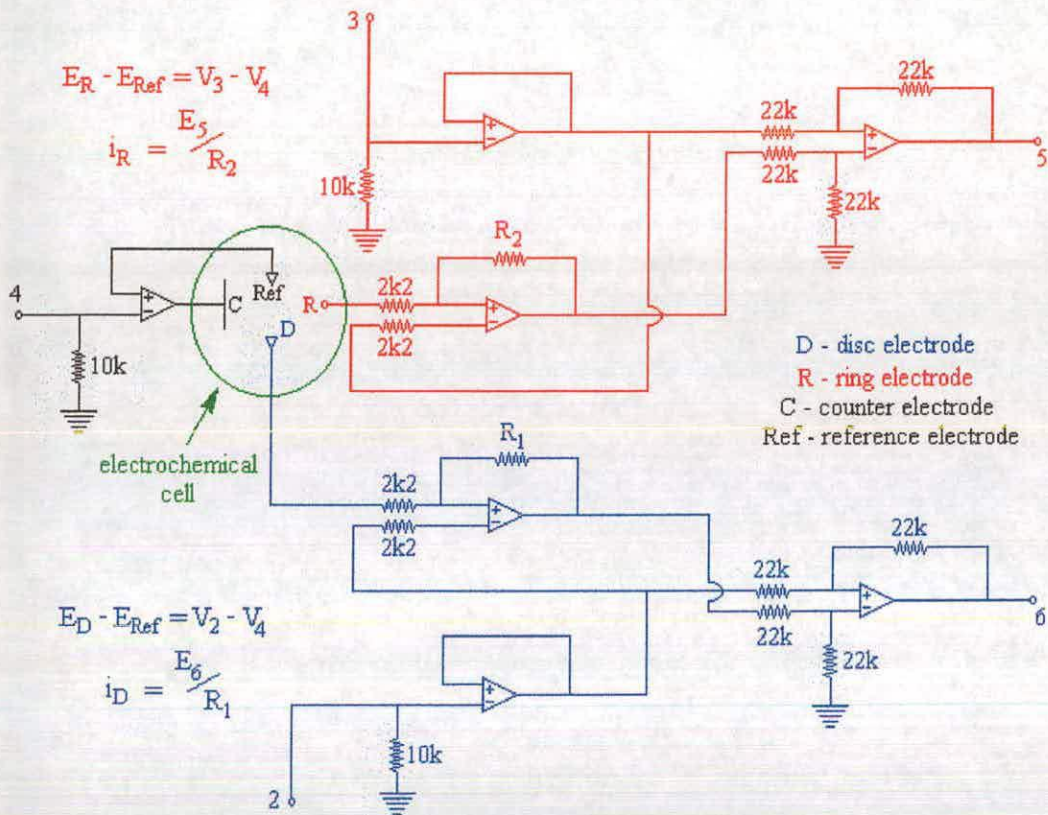 3
E_R - E_Ref = V_3 - V_4
i_R = E_5/R_2
22k
22k
22k
22k
5
10k
R_2
4
10k
C
Ref
R
D
2k2
2k2
D - disc electrode
R - ring electrode
C - counter electrode
Ref - reference electrode
electrochemical
cell
R_1
2k2
2k2
22k
22k
22k
22k
6
E_D - E_Ref = V_2 - V_4
i_D = E_6/R_1
10k
2
+
−
+
−
+
−
+
−
+
−
+
−
+
−